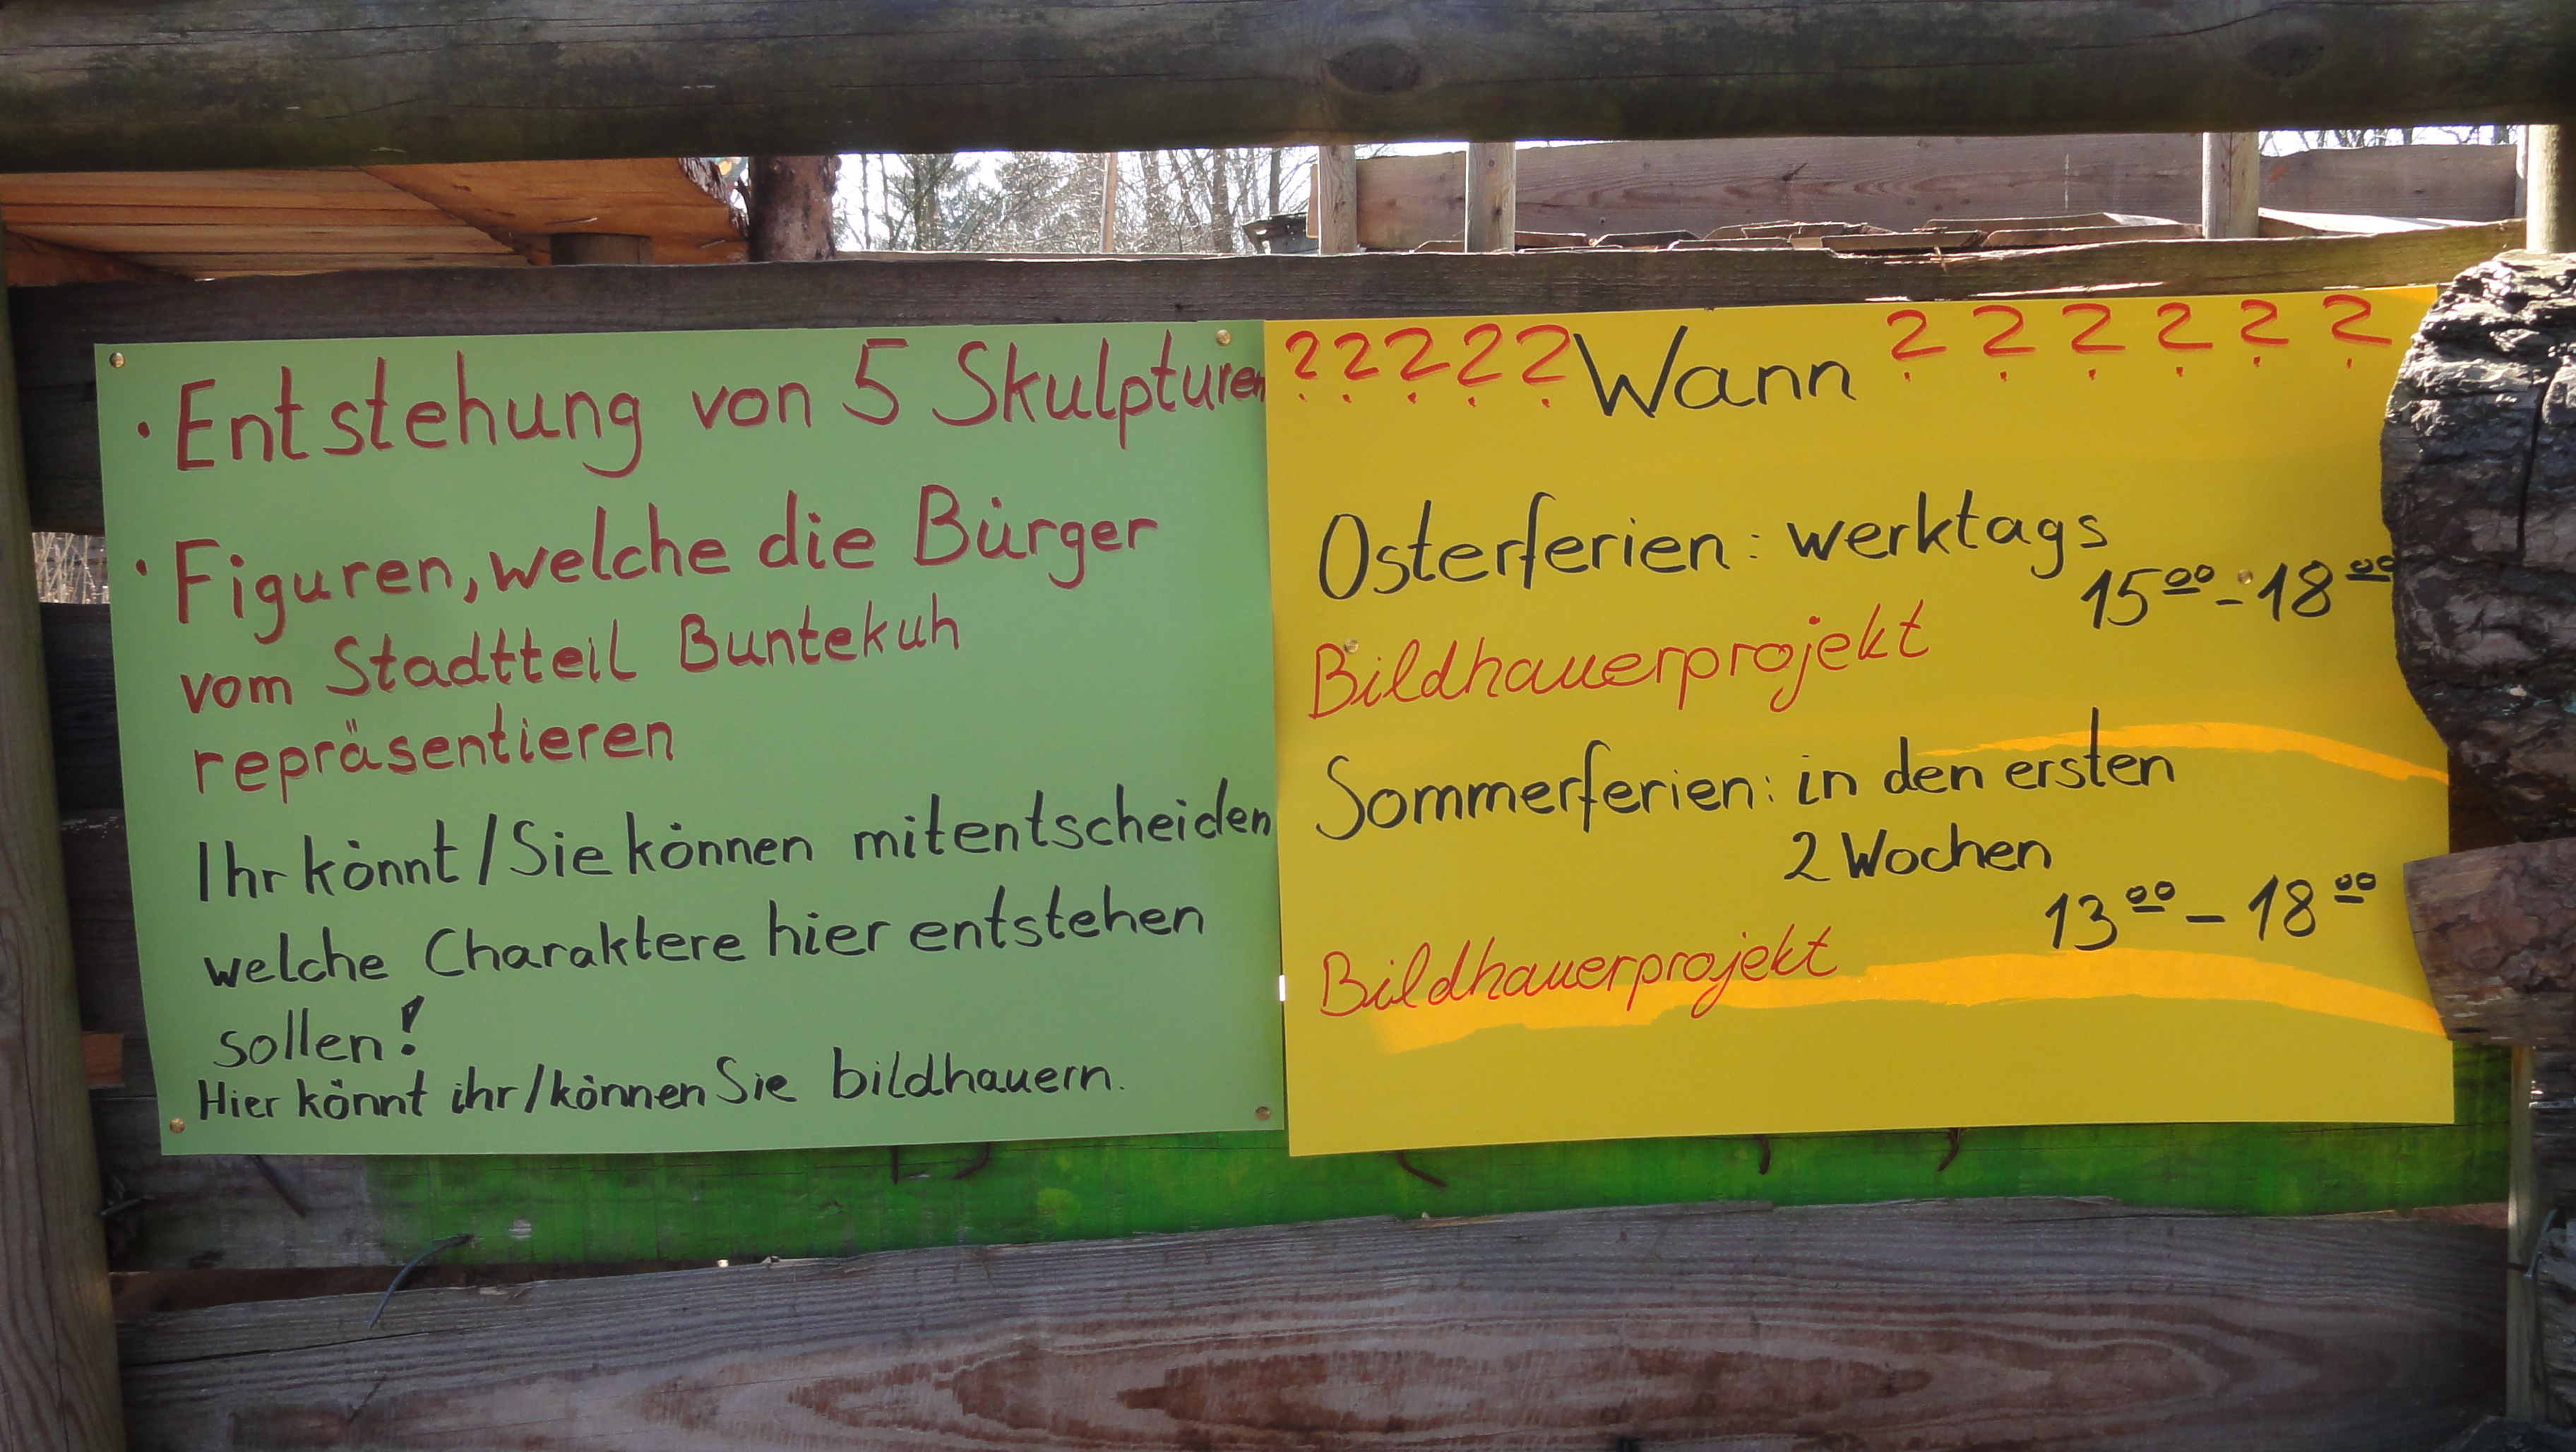 · Entstehung von 5 Skulpturen
· Figuren, welche die Bürger
vom Stadtteil Buntekuh
repräsentieren
Ihr könnt / Sie können mitentscheiden
welche Charaktere hier entstehen
sollen!
Hier könnt ihr / können Sie bildhauern.
????? Wann ??????
Osterferien: werktags
15⁰⁰ - 18⁰⁰
Bildhauerprojekt
Sommerferien: in den ersten
2 Wochen
13⁰⁰ - 18⁰⁰
Bildhauerprojekt